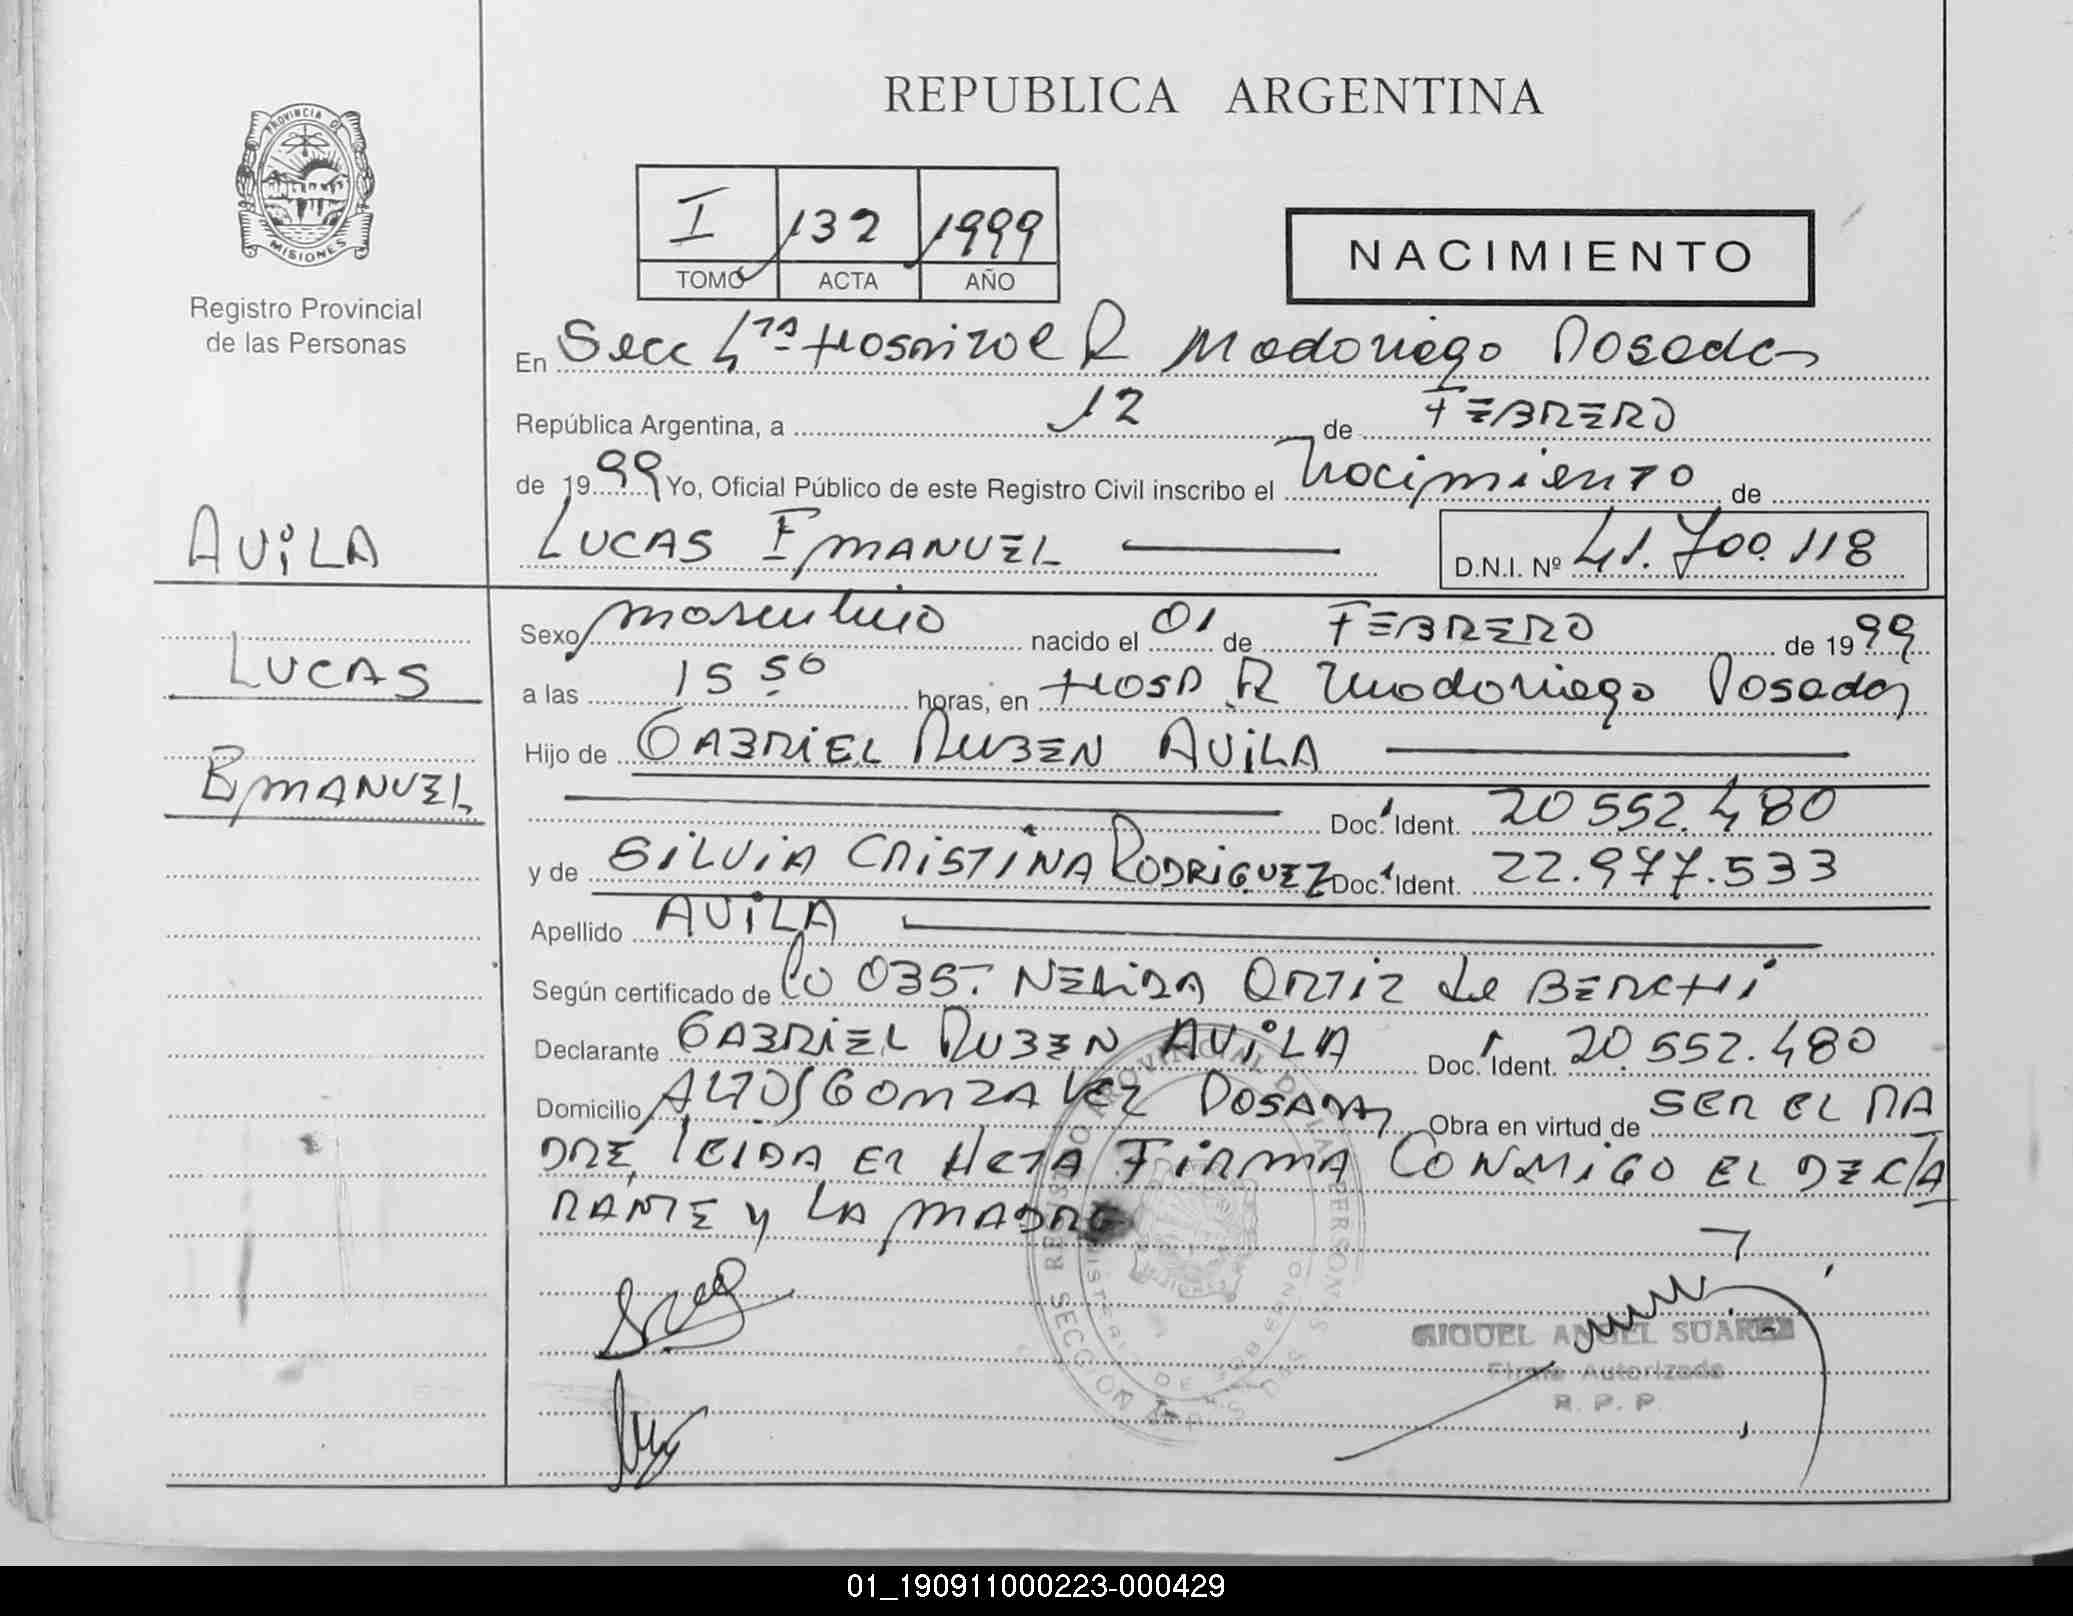 REPUBLICA ARGENTINA
PROVINCIA DE
MISIONES
Registro Provincial
de las Personas
I 132 1999
TOMO ACTA AÑO
NACIMIENTO
En Secc 4ta Hospital R Madariaga Posadas
República Argentina, a 12 de FEBRERO
de 1999 Yo, Oficial Público de este Registro Civil inscribo el Nacimiento de
AVILA
LUCAS EMANUEL
D.N.I. Nº 41.700.118
LUCAS
EMANUEL
Sexo masculino nacido el 01 de FEBRERO de 1999
a las 15 50 horas, en HOSP R Madariaga Posadas
Hijo de GABRIEL RUBEN AVILA
Doc. Ident. 20 552.480
y de SILVIA CRISTINA RODRIGUEZ Doc. Ident. 22.977.533
Apellido AVILA
Según certificado de La OBST. NELIDA ORTIZ de BERCHI
Declarante GABRIEL RUBEN AVILA Doc. Ident. 20.552.480
Domicilio POSADAS Obra en virtud de SER EL PA
DRE, LEIDA EL ACTA FIRMA CONMIGO EL DECLA
RANTE y LA MADRE
REGISTRO PROVINCIAL DE LAS PERSONAS
SECCION
MIGUEL ANGEL SUAREZ
Firma Autorizada
R. P. P.
01_190911000223-000429